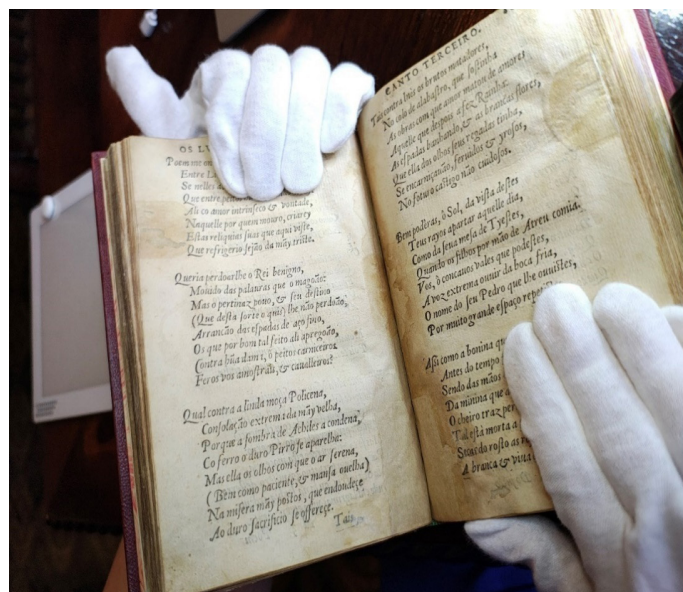 OS LV
Poem me en
Entre Li
Se nelles a
Que entre
Ali co amor intrinseco & vontade,
Naquelle por quem mouro, criarey
Estas reliquias suas que aqui viste,
Que refrigerio sejão da mãy triste.
Queria perdoarlhe o Rei benigno,
Mouido das palauras que o magoão:
Mas o pertinaz pouo, & seu destino
(Que desta sorte o quis) lhe não perdoão,
Arrancão das espadas de aço fino,
Os que por bom tal feito ali apregoão,
Contra hũa dama, ô peitos carniceiros
Feros vos amostrais, & caualleiros?
Qual contra a linda moça Policena,
Consolação extrema da mãy velha,
Porque a sombra de Achiles a condena,
Co ferro o duro Pirro se aparelha:
Mas ella os olhos com que o ar serena,
(Bem como paciente, & mansa ouelha)
Na misera mãy postos, que endoudece
Ao duro sacrificio se offerece.
Tais
CANTO TERCEIRO.
Tais contra Ines os brutos matadores,
No colo de alabastro, que sostinha
As obras com que amor matou de amores
Aquelle que despois a fez Rainha:
As espadas banhando, & as brancas flores,
Que ella dos olhos seus regadas tinha,
Se encarniçauão, feruidos & yrosos,
No futuro castigo não cuidosos.
Bem poderas, ô Sol, da vista destes
Teus rayos apartar aquelle dia,
Como da seua mesa de Tyestes,
Quando os filhos por mão de Atreu comia.
Vos, ô concauos vales que podestes,
A voz extrema ouuir da boca fria,
O nome do seu Pedro que lhe ouuistes,
Por muito grande espaço repe
Assi como a bonina q
Antes do tempo
Sendo das mãos
Da minina que
O cheiro traz per
Tal està morta a
Secas do rosto as
A branca & viua